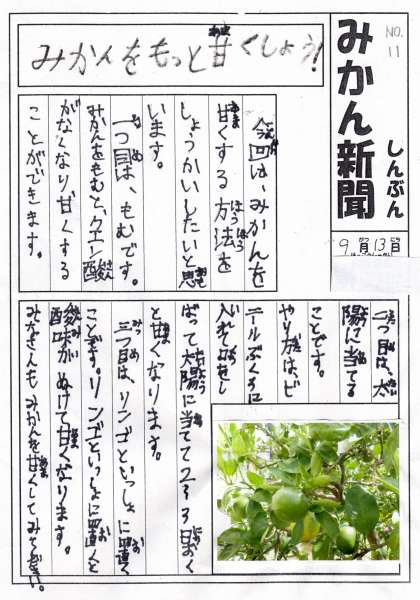 NO.11
みかん新聞
しんぶん
9月13日
みかんをもっと甘くしょう!
今回は、みかんを
甘くする方法を
しょうかいしたいと思
います。
一つ目は、もむです。
みかんをもむと、クエン酸
がなくなり甘くする
ことができます。
二つ目は、太
陽に当てる
ことです。
やり方は、ビ
ニールぶくろに
入れて口をし
ばって太陽に当てて2〜3日おく
と甘くなります。
三つ目は、リンゴといっしょに置く
ことです。リンゴといっしょに置くと
酸味がぬけて甘くなります。
みなさんもみかんを甘くしてみてください。